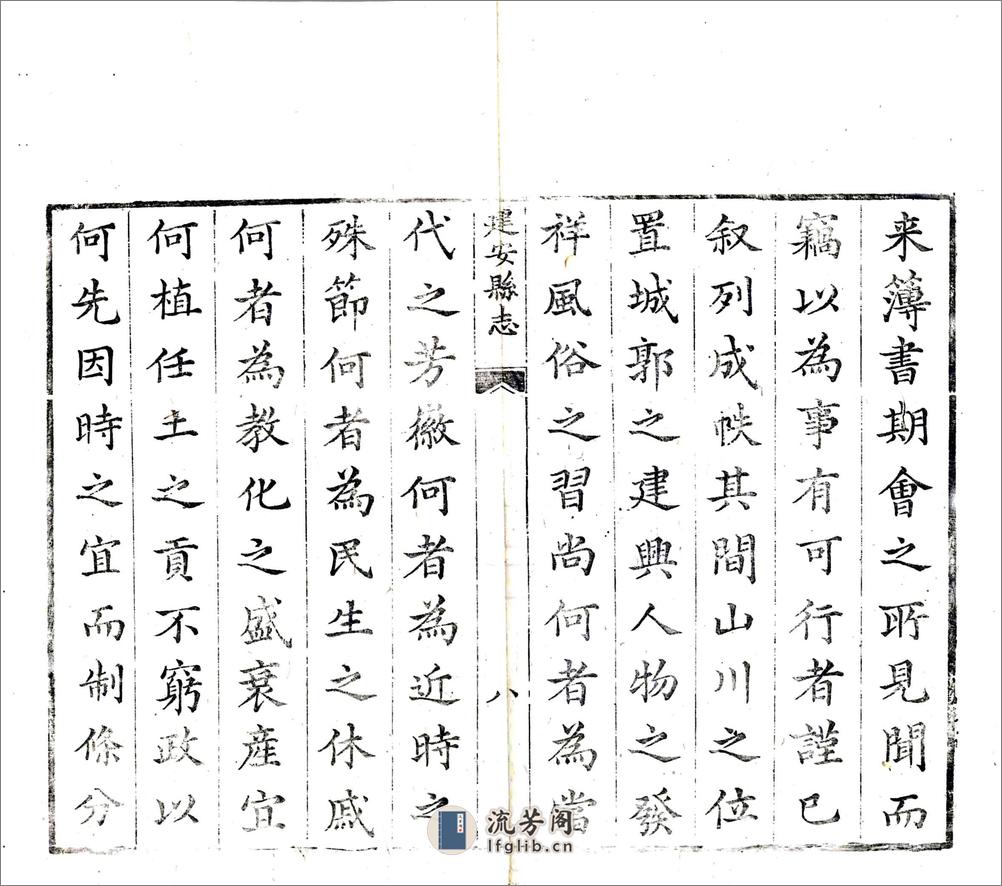 来簿書期會之所見聞而
竊以為事有可行者謹已
叙列成帙其間山川之位
置城郭之建興人物之發
祥風俗之習尚何者為當
建安縣志
八
代之芳徽何者為近時之
殊節何者為民生之休戚
何者為教化之盛衰產宜
何植任土之貢不窮政以
何先因時之宜而制條分
流芳阁
lfglib.cn